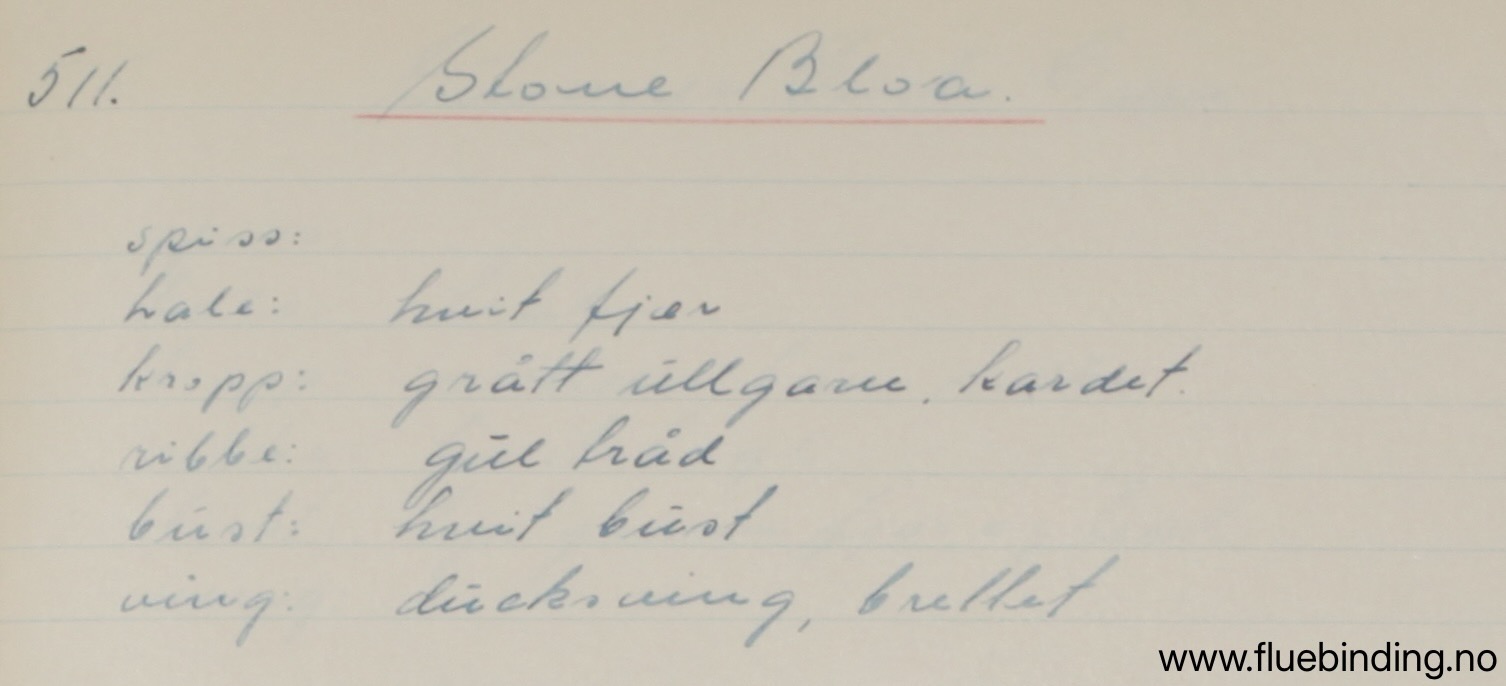 511. Stone Bloa.
spiss:
hale: hvit fjær
kropp: grått ullgarn, kardet.
ribbe: gul tråd
bust: hvit bust
ving: ducksving, brettet
www.fluebinding.no